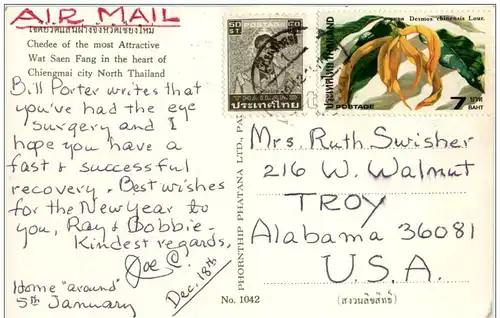 AIR MAIL
เจดีย์วัดแสนฝางจังหวัดเชียงใหม่
Chedee of the most Attractive
Wat Saen Fang in the heart of
Chiengmai city North Thailand
Bill Porter writes that
you've had the eye
surgery and I
hope you have a
fast & successful
recovery. Best wishes
for the New Year to
you, Ray & Bobbie.
Kindest regards,
Joe C.
Dec. 18th
Home "around"
5th January
PHORNTHIP PHATANA LTD., PA
No. 1042
(สงวนลิขสิทธิ์)
50 POSTAGE 50
ST. ST.
THAILAND
ประเทศไทย
Desmos chinensis Lour.
ประเทศไทย THAILAND
POSTAGE
7 บาท
BAHT
Mrs. Ruth Swisher
216 W. Walnut
TROY
Alabama 36081
U.S.A.